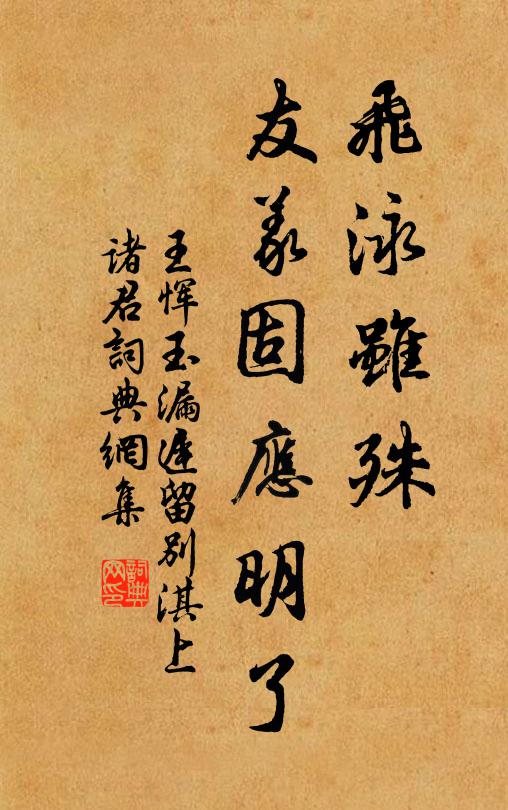 飛泳雖殊
友義固應明了
王惲玉漏遲留別淇上
諸君詞典網集
詞典網印